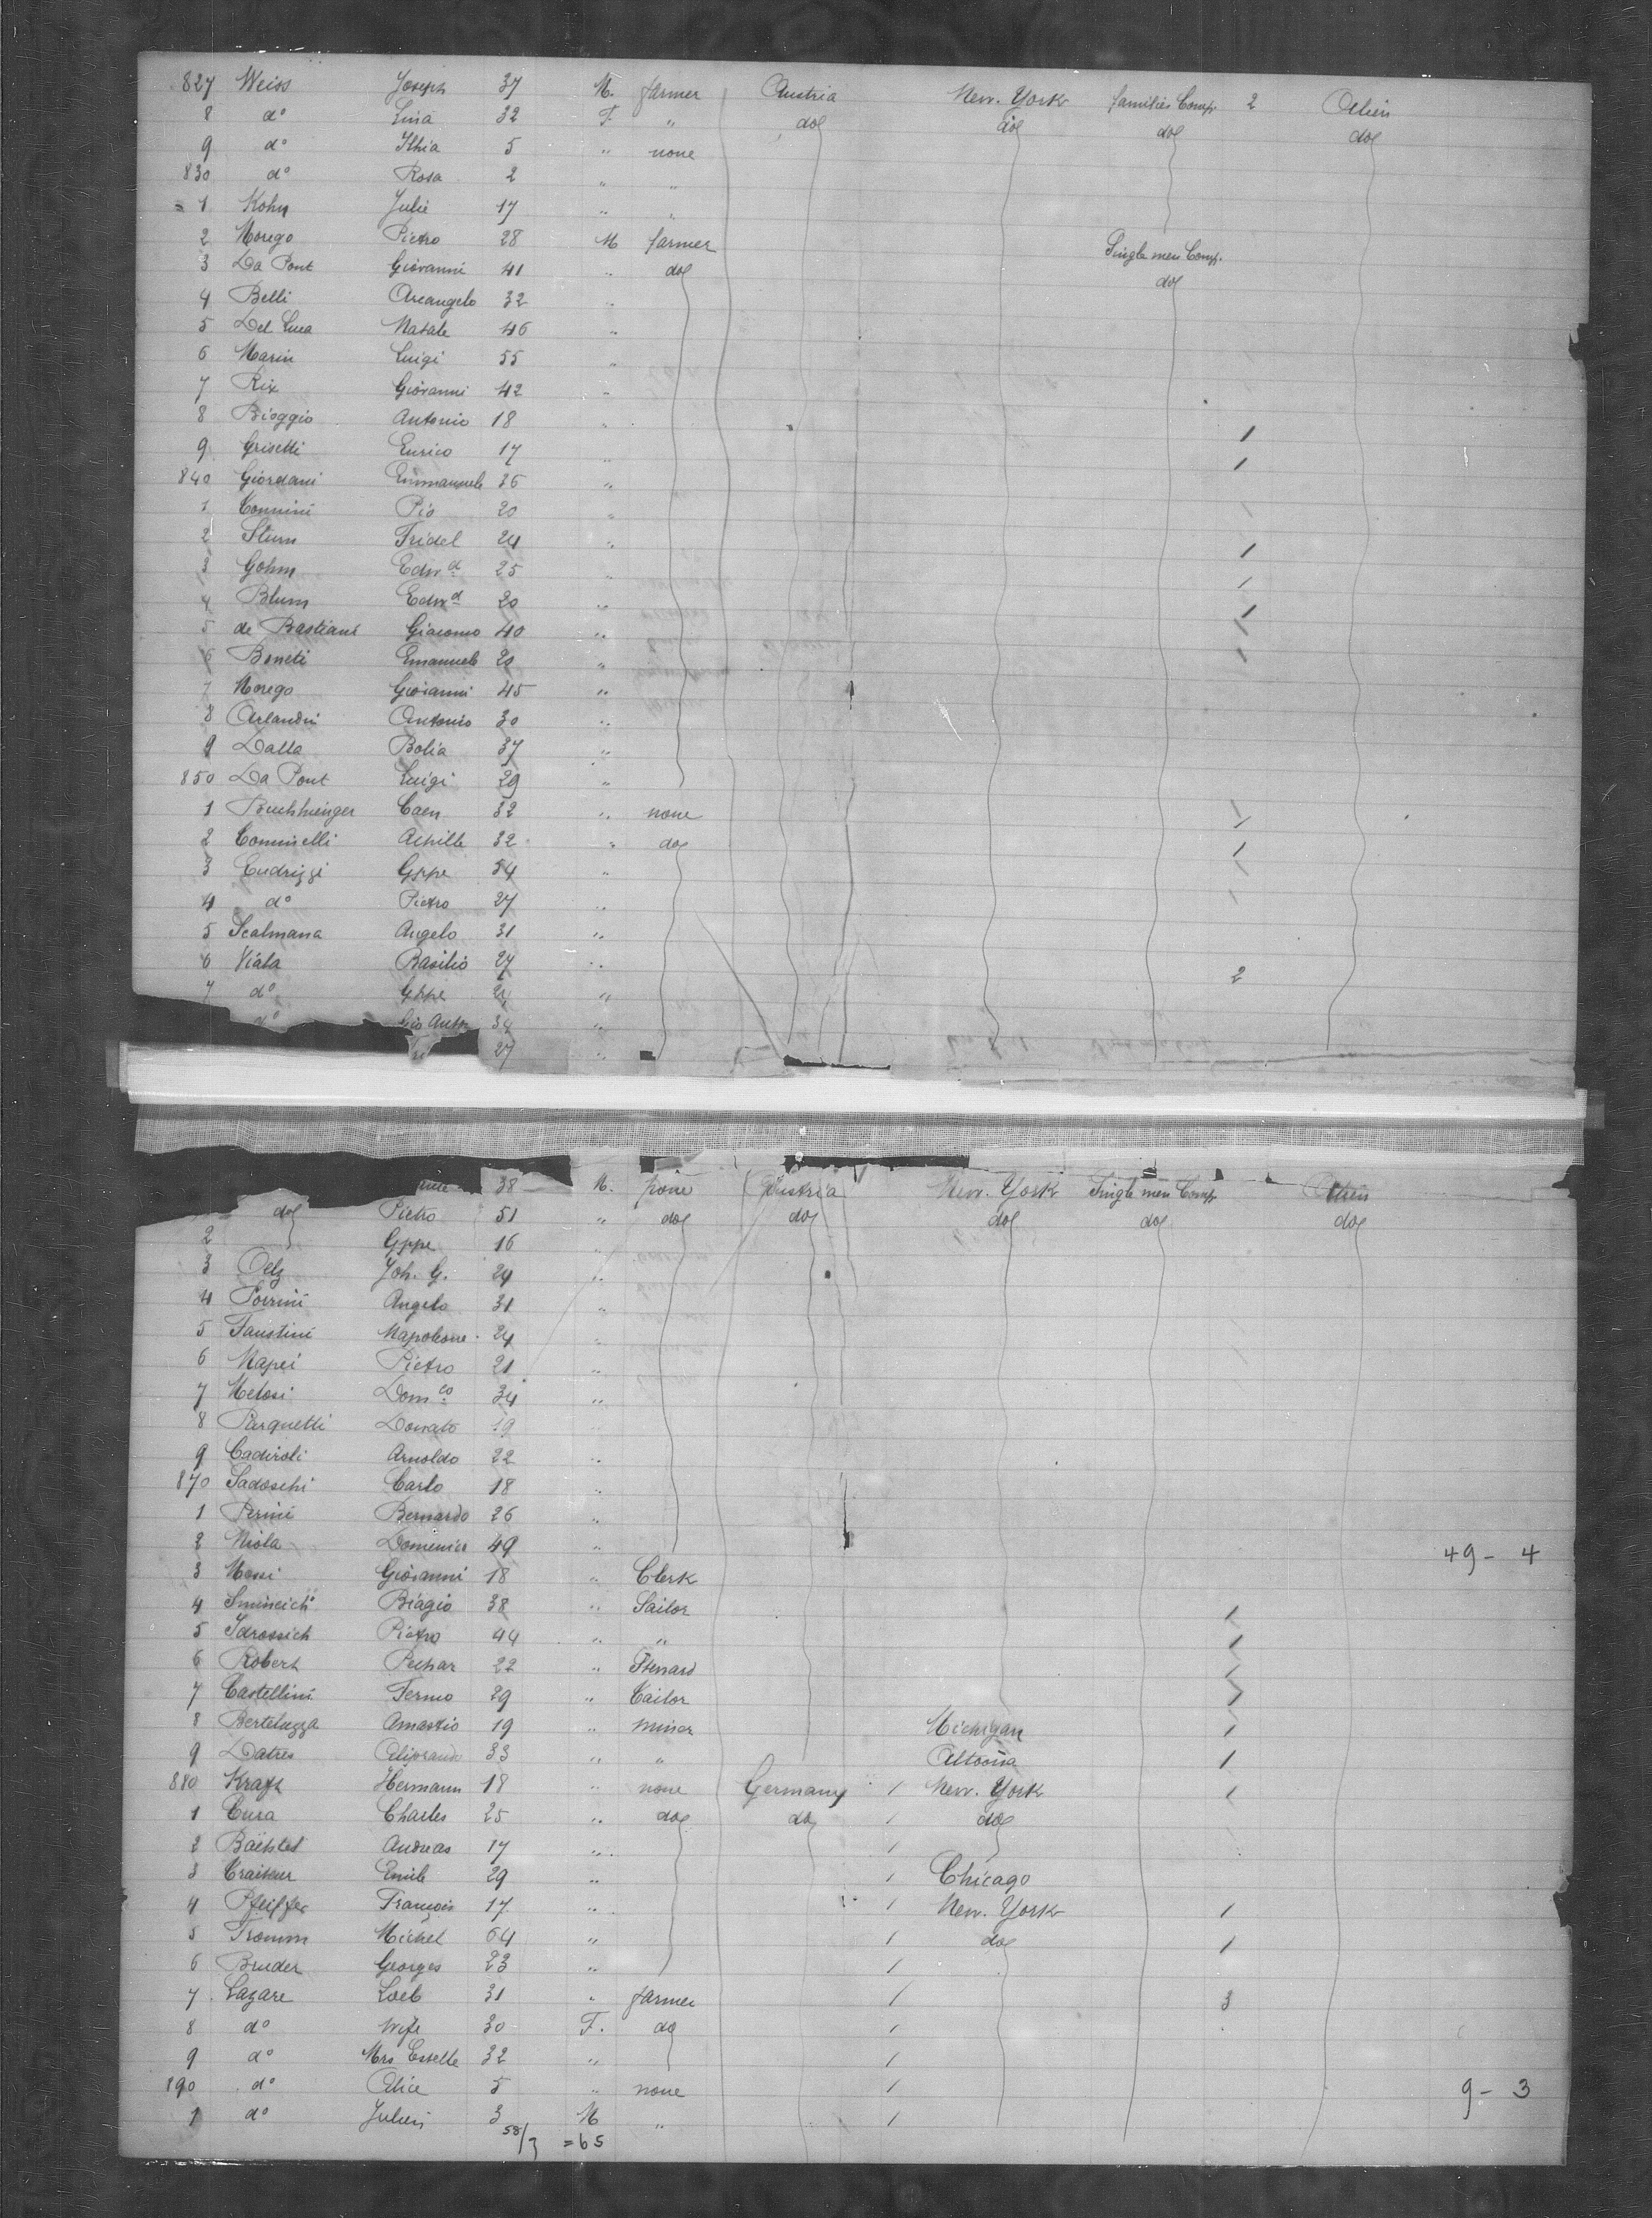 827 Weiss Joseph 37 M. farmer Austria New. York families Comp. 2 Alien
8 do Lina 32 F. " do do do do
9 do 5 " none
830 do Rosa 2 " "
1 Kohn Julie 17 " "
2 Morego Pietro 28 M farmer Single men Comp.
3 Da Pont Giovanni 41 " do do
4 Belli Arcangelo 32 "
5 Del Luca Natale 46 "
6 Marin Luigi 55 "
7 Rix Giovanni 42 "
8 Bioggio Antonio 18 "
9 Grisetti Enrico 17 "
840 Giordani Emmanuele 36 "
1 Pio 20 "
2 Sturn Fridel 24 "
3 Gohm Edwd 25 "
4 Blum Edwd 20 "
5 de Bastiani Giacomo 40 "
6 Boneti Emanuele 20 "
7 Morego Giovanni 45 "
8 Orlandin Antonio 30 "
9 Dalla Bolia 37 "
850 Da Pont Luigi 29 "
1 Caen 32 " none
2 Cominelli Achille 32 " do
3 Endrizzi Gppe 54 "
4 do Pietro 27 "
5 Scalmana Angelo 31 "
6 Viala Basilio 27 " 2
7 do Gppe 24 "
do Gio Antn 34 "
27 "
38 M. none Austria New. York Single men Comp Alien
do Pietro 51 " do do do do do
2 Gppe 16
3 Oelz Joh. G. 24 "
4 Porrini Angelo 31 "
5 Faustini Napoleone 24 "
6 Mapei Pietro 21 "
7 Melosi Domco 34 "
8 Parquetti Donato 19
9 Cadiroli Arnoldo 22 "
870 Sadoschi Carlo 18 "
1 Perini Bernardo 26 "
2 Niola Domenico 49 " 49 - 4
3 Mossi Giovanni 18 " Clerk
4 Biagio 38 " Sailor
5 Idrossich Pietro 44 " "
6 Robert Pechar 22 " Steward
7 Castellini Fermo 29 " Tailor
8 Berteluzza Amastio 19 " miner Michigan
9 Datres 33 " " Altoona
880 Kraft Hermann 18 " none Germany 1 New. York
1 Cura Charles 25 " do do 1 do
2 Andreas 17 " 1
3 Emile 29 " 1 Chicago
4 Pfeiffer François 17 " 1 New. York
5 Fromm Michel 64 " 1 do
6 Bruder Georges 23 " 1
7 Lazare Loeb 31 " farmer 1 3
8 do Wife 30 F. do 1
9 do Mrs Estelle 32 " 1
890 do Alice 5 " none 1 9 - 3
1 do Julien 3 M " 1
58/7 = 65